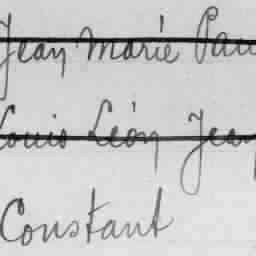 Jean Marie Pau
Louis Léon Jean
Constant